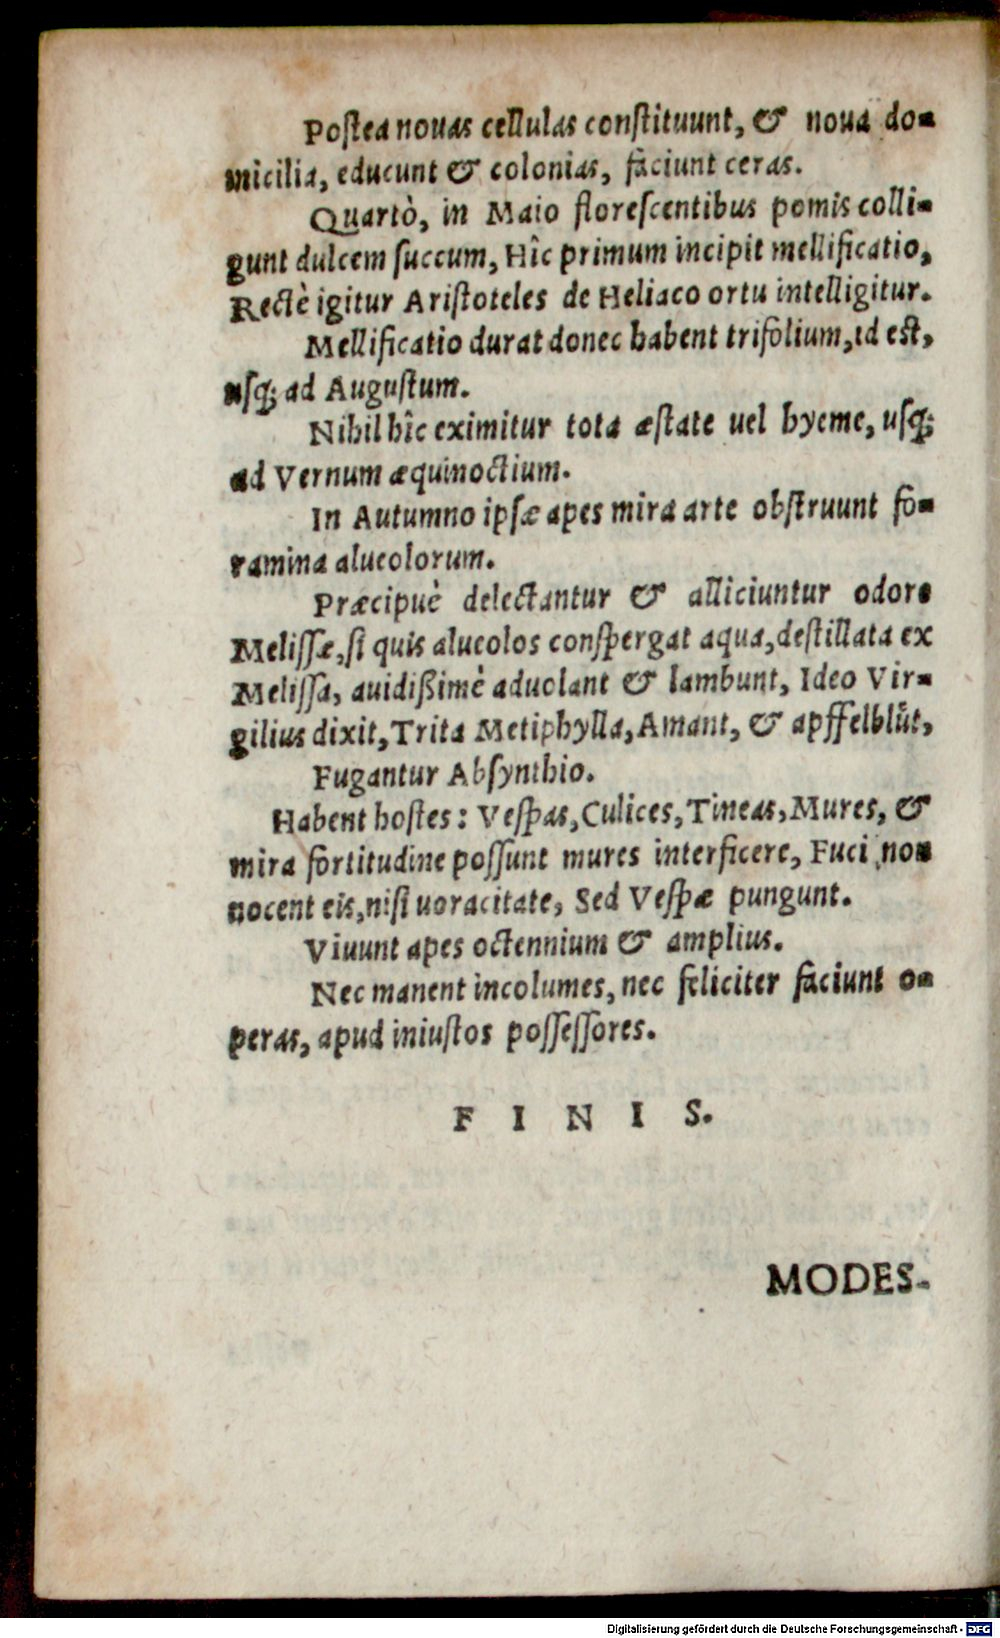 Postea nouas cellulas constituunt, & noua do-
micilia, educunt & colonias, faciunt ceras.
Quartò, in Maio florescentibus pomis colli-
gunt dulcem succum, Hîc primum incipit mellificatio,
Rectè igitur Aristoteles de Heliaco ortu intelligitur.
Mellificatio durat donec habent trifolium, id est,
usq; ad Augustum.
Nihil hîc eximitur tota æstate uel hyeme, usq;
ad Vernum æquinoctium.
In Autumno ipsæ apes mira arte obstruunt fo-
ramina alueolorum.
Præcipuè delectantur & alliciuntur odore
Melissæ, si quis alueolos conspergat aqua, destillata ex
Melissa, auidißimè aduolant & lambunt, Ideo Vir-
gilius dixit, Trita Metiphylla, Amant, & apffelblůt,
Fugantur Absynthio.
Habent hostes: Vespas, Culices, Tineas, Mures, &
mira fortitudine possunt mures interficere, Fuci non
nocent eis, nisi uoracitate, Sed Vespæ pungunt.
Viuunt apes octennium & amplius.
Nec manent incolumes, nec feliciter faciunt o-
peras, apud iniustos possessores.
F I N I S.
MODES-
Digitalisierung gefördert durch die Deutsche Forschungsgemeinschaft - DFG